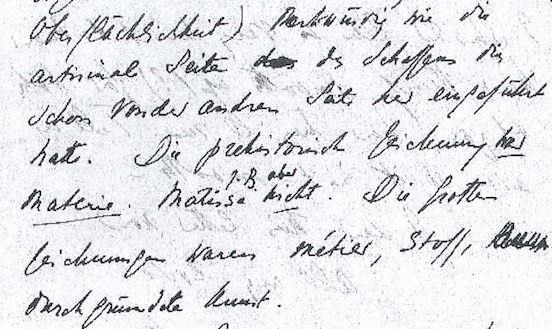 Oberflächlichkeit) Merkwürdig wie die
artisinal Seite des Schaffens die
schon von der andren Seite her eingeführt
hatte. Die prehistorisch Zeichnung hat
Materie. Matisse z.B. aber nicht. Die Grotten
zeichnungen waren métier, Stoff,
durchgründete Kunst.